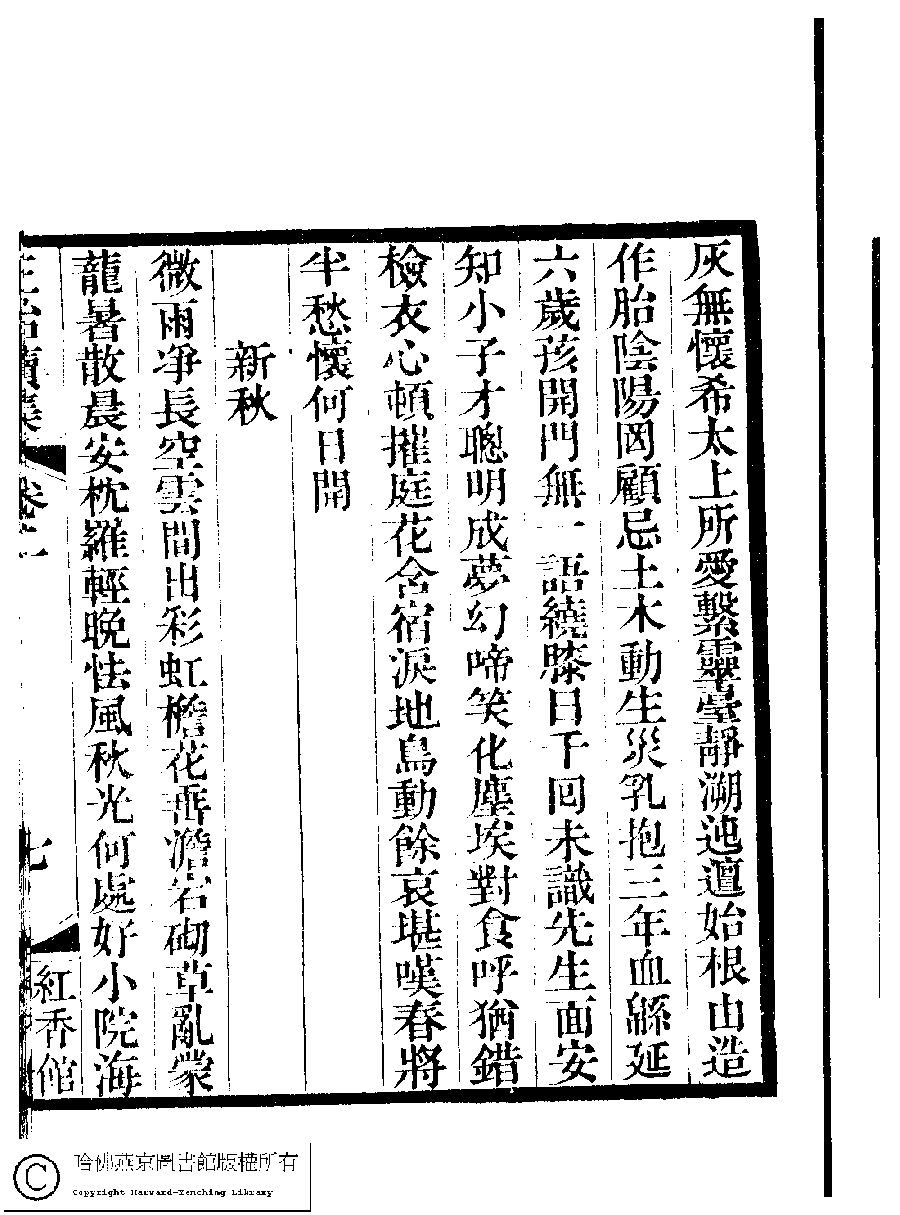 灰無懷希太上所愛繫靈臺靜溯迍邅始根由造
作胎陰陽罔顧忌土木動生災乳抱三年血緜延
六歲孩開門無一語繞膝日千回未識先生面安
知小子才聰明成夢幻啼笑化塵埃對食呼猶錯
檢衣心頓摧庭花含宿淚地鳥動餘哀堪嘆春將
半愁懷何日開
新秋
微雨凈長空雲間出彩虹檐花垂澹宕砌草亂蒙
龍暑散晨安枕羅輕晚怯風秋光何處好小院海
卷二
七
紅香館
哈佛燕京圖書館版權所有
Copyright Harvard-Yenching Library